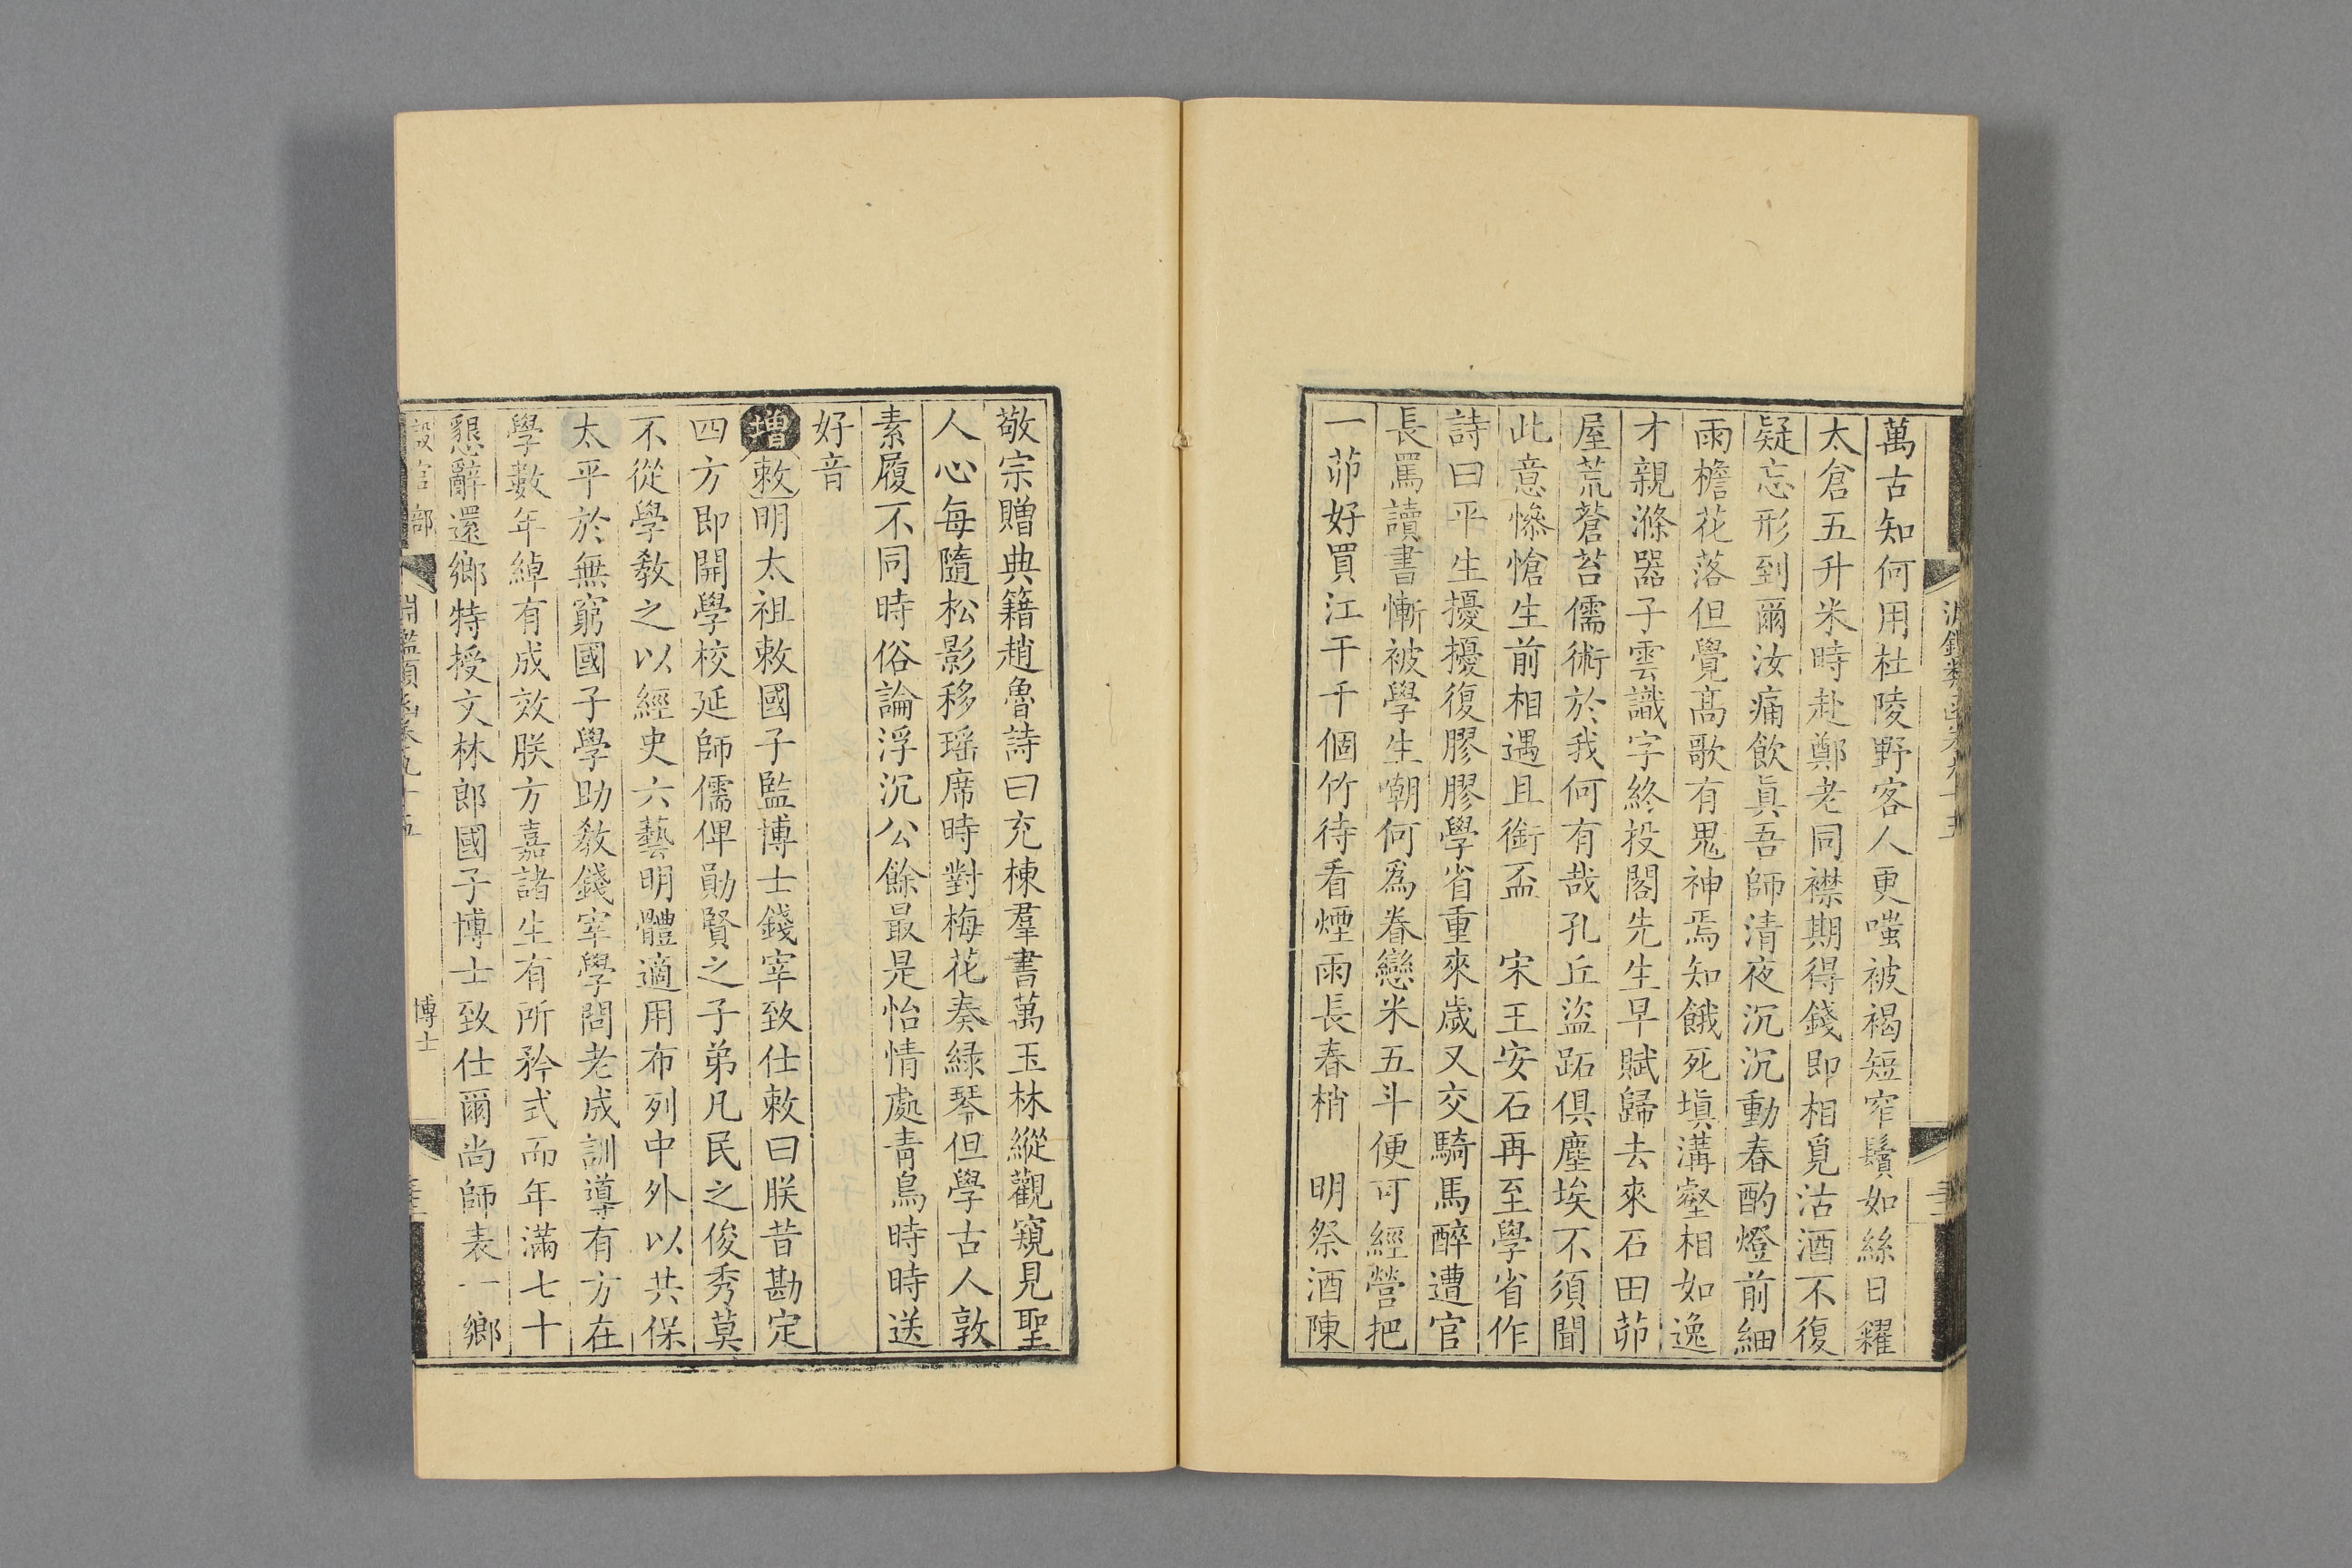 萬古知何用杜陵野客人更嗤被褐短窄鬢如絲日糴
太倉五升米時赴鄭老同襟期得錢即相覓沽酒不復
疑忘形到爾汝痛飲眞吾師清夜沉沉動春酌燈前細
雨檐花落但覺高歌有鬼神焉知餓死塡溝壑相如逸
才親滌器子雲識字終投閣先生早賦歸去來石田茆
屋荒蒼苔儒術於我何有哉孔丘盜跖俱塵埃不須聞
此意慘愴生前相遇且銜盃　宋王安石再至學省作
詩曰平生擾擾復膠膠學省重來歲又交騎馬醉遭官
長罵讀書慚被學生嘲何爲眷戀米五斗便可經營把
一茆好買江干千個竹待看煙雨長春梢　明祭酒陳
敬宗贈典籍趙魯詩曰充棟羣書萬玉林縱觀窺見聖
人心每隨松影移瑶席時對梅花奏緑琴但學古人敦
素履不同時俗論浮沉公餘最是怡情處青鳥時時送
好音
增敕明太祖敕國子監博士錢宰致仕敕曰朕昔勘定
四方即開學校延師儒俾勛賢之子弟凡民之俊秀莫
不從學敎之以經史六藝明體適用布列中外以共保
太平於無窮國子學助敎錢宰學問老成訓導有方在
學數年綽有成效朕方嘉諸生有所矜式而年滿七十
懇辭還鄉特授文林郎國子博士致仕爾尚師表一鄉
設官部
淵鑑類函卷九十五
博士